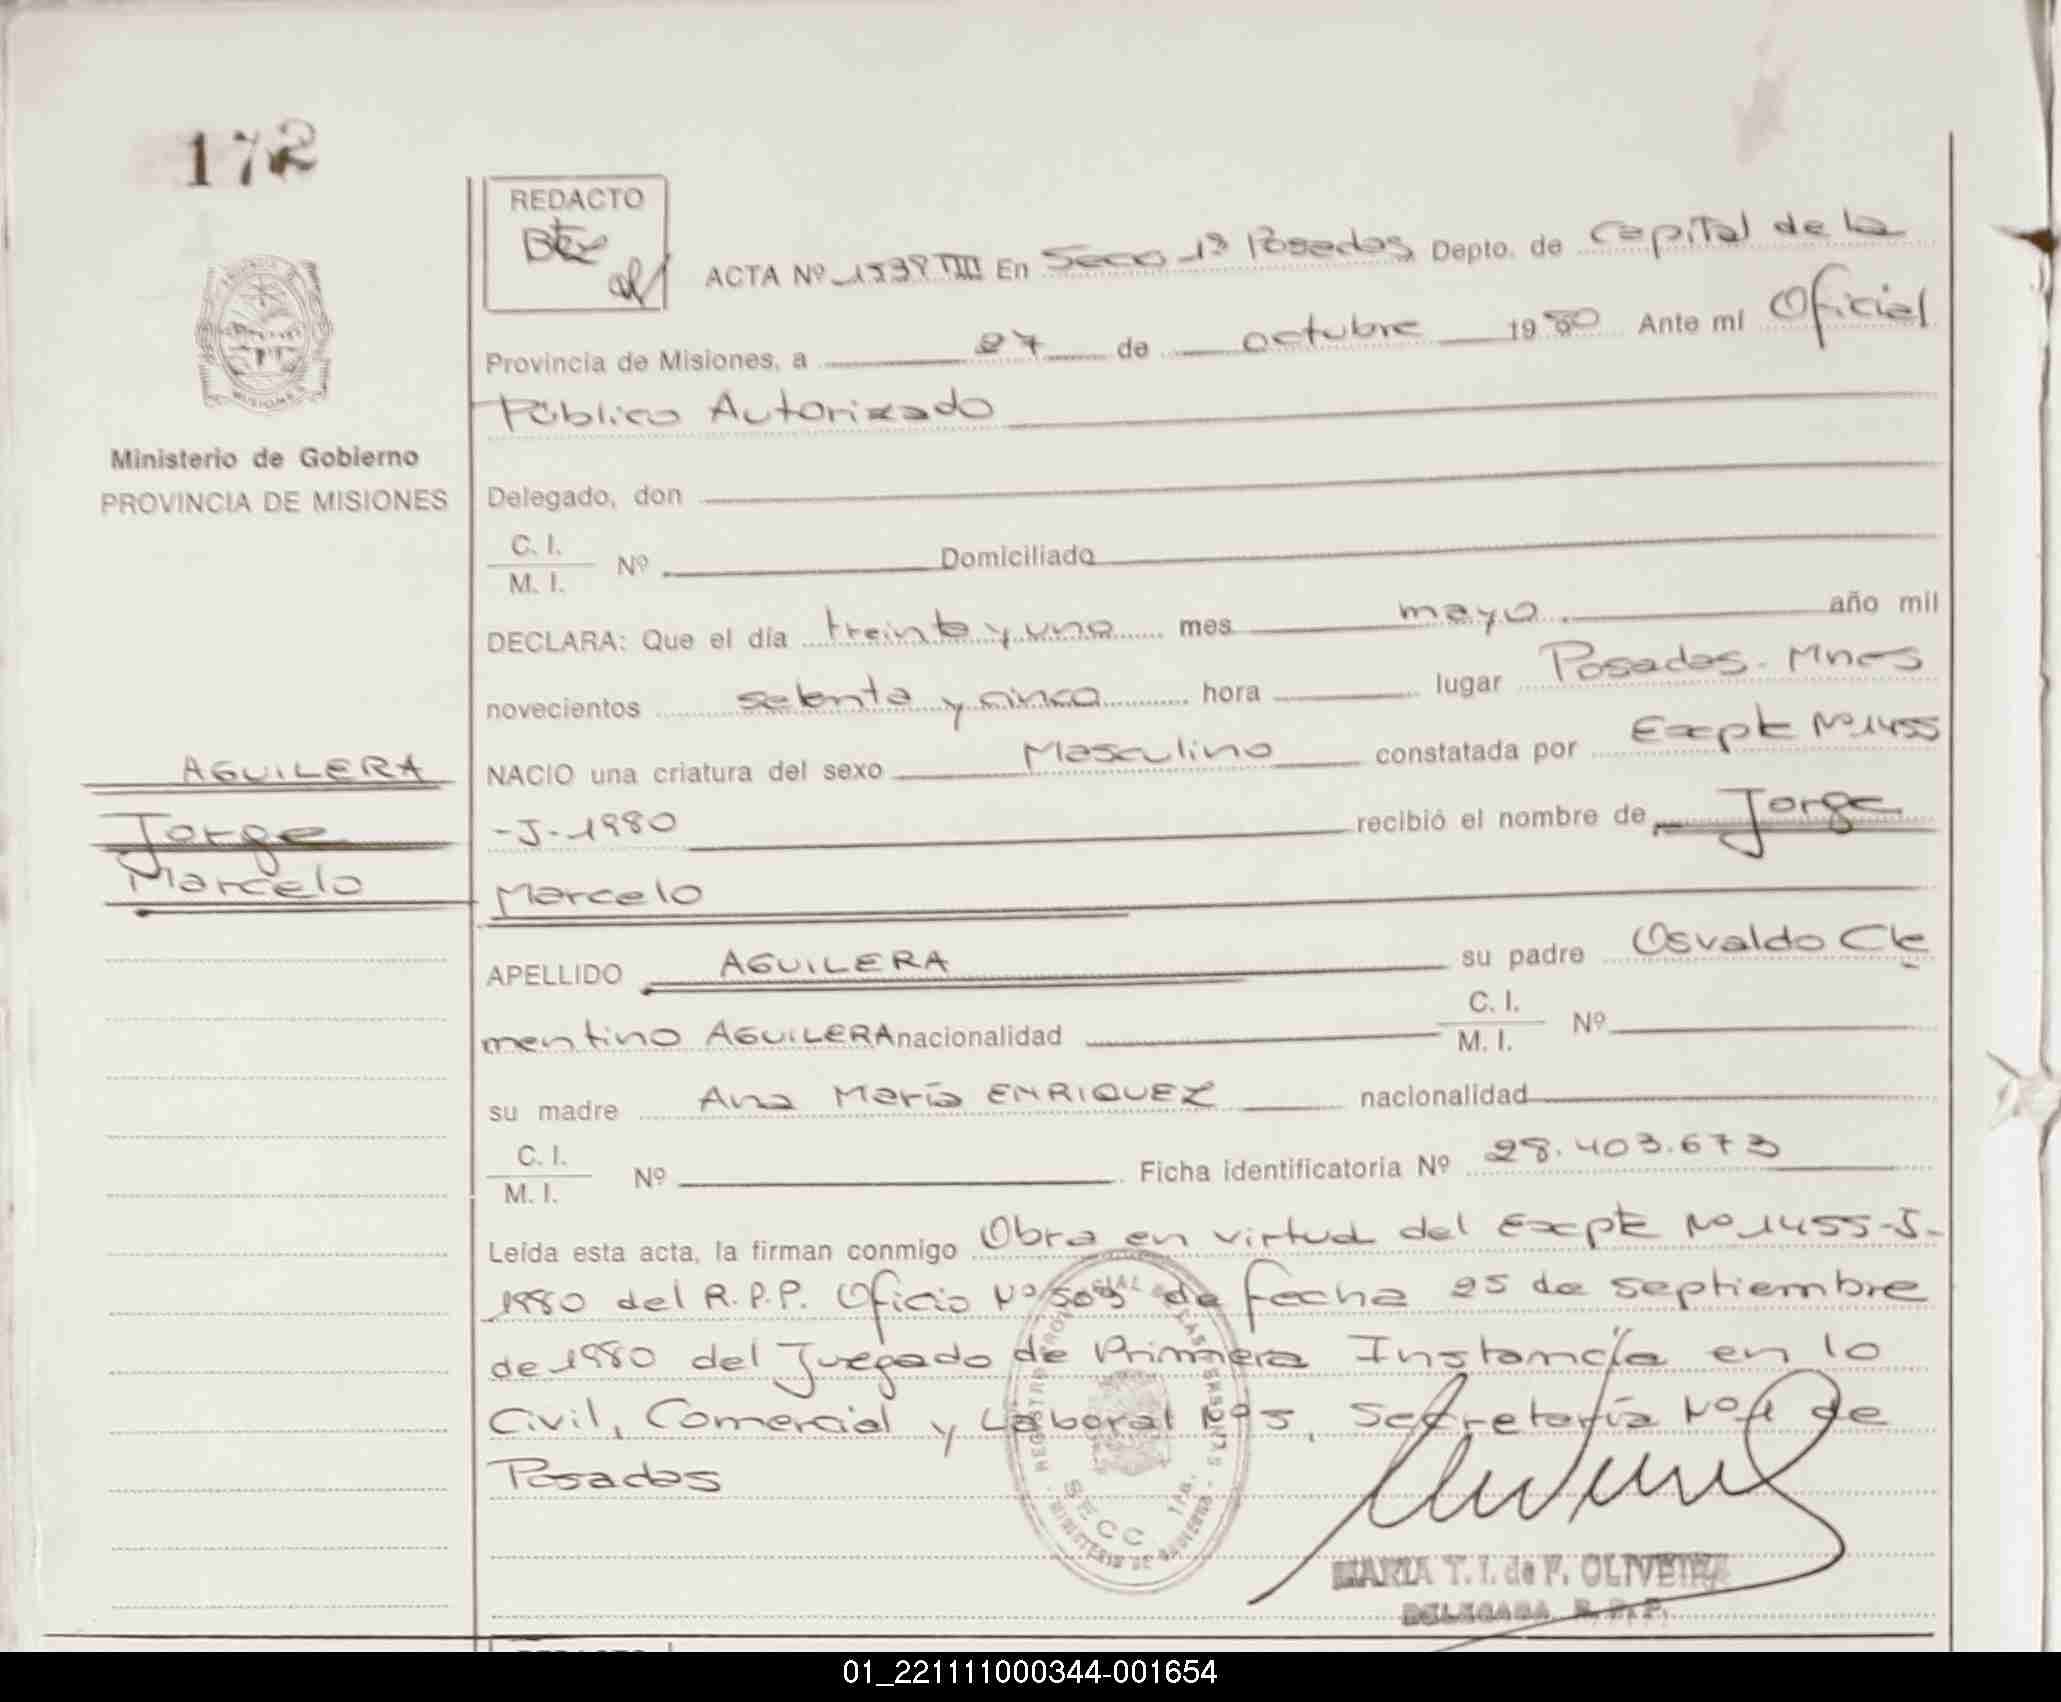 172
REDACTO
ACTA Nº 1539 TIII En Secc 1ª Posadas Depto. de Capital de la
Provincia de Misiones, a 27 de octubre 1980 Ante mí Oficial
Público Autorizado
Ministerio de Gobierno
PROVINCIA DE MISIONES
Delegado, don
C. I.
M. I. Nº Domiciliado
DECLARA: Que el día treinta y uno mes mayo año mil
novecientos setenta y cinco hora lugar Posadas. Mnes
AGUILERA
Jorge
Marcelo
NACIO una criatura del sexo Masculino constatada por Expte Nº 1455
-J-1980 recibió el nombre de Jorge
Marcelo
APELLIDO AGUILERA su padre Osvaldo Cle
mentino AGUILERA nacionalidad C. I. M. I. Nº
su madre Ana María ENRIQUEZ nacionalidad
C. I.
M. I. Nº Ficha identificatoria Nº 28.403.673
Leída esta acta, la firman conmigo Obra en virtud del Expte Nº 1455-J-
1980 del R.P.P. Oficio Nº 503 de fecha 25 de septiembre
de 1980 del Juegado de Primera Instancia en lo
Civil, Comercial y Laboral Nº 5, Secretaría Nº 1 de
Posadas
SECC 1RA.
MARIA T. I. de F. OLIVEIRA
DELEGADA R. P. P.
01_221111000344-001654